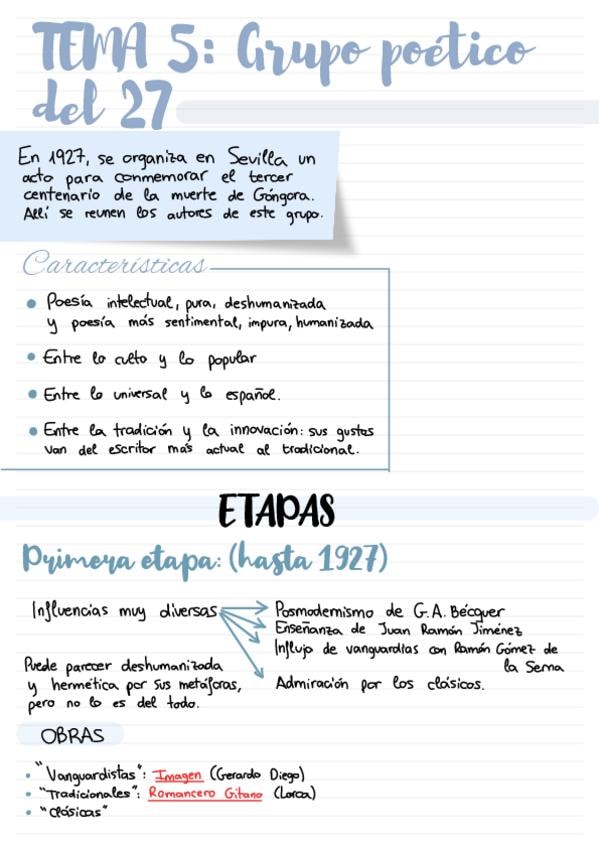 TEMA 5: Grupo poético
del 27
En 1927, se organiza en Sevilla un
acto para conmemorar el tercer
centenario de la muerte de Góngora.
Allí se reunen los autores de este grupo.
Características
• Poesía intelectual, pura, deshumanizada
y poesía más sentimental, impura, humanizada
• Entre lo culto y lo popular
• Entre lo universal y lo español.
• Entre la tradición y la innovación: sus gustos
van del escritor más actual al tradicional.
ETAPAS
Primera etapa: (hasta 1927)
Influencias muy diversas
Posmodernismo de G.A. Bécquer
Enseñanza de Juan Ramón Jiménez
Influjo de vanguardias con Ramón Gómez de
la Serna
Admiración por los clásicos.
Puede parecer deshumanizada
y hermética por sus metáforas,
pero no lo es del todo.
OBRAS
• "Vanguardistas": Imagen (Gerardo Diego)
• "Tradicionales": Romancero Gitano (Lorca)
• "Clásicas"